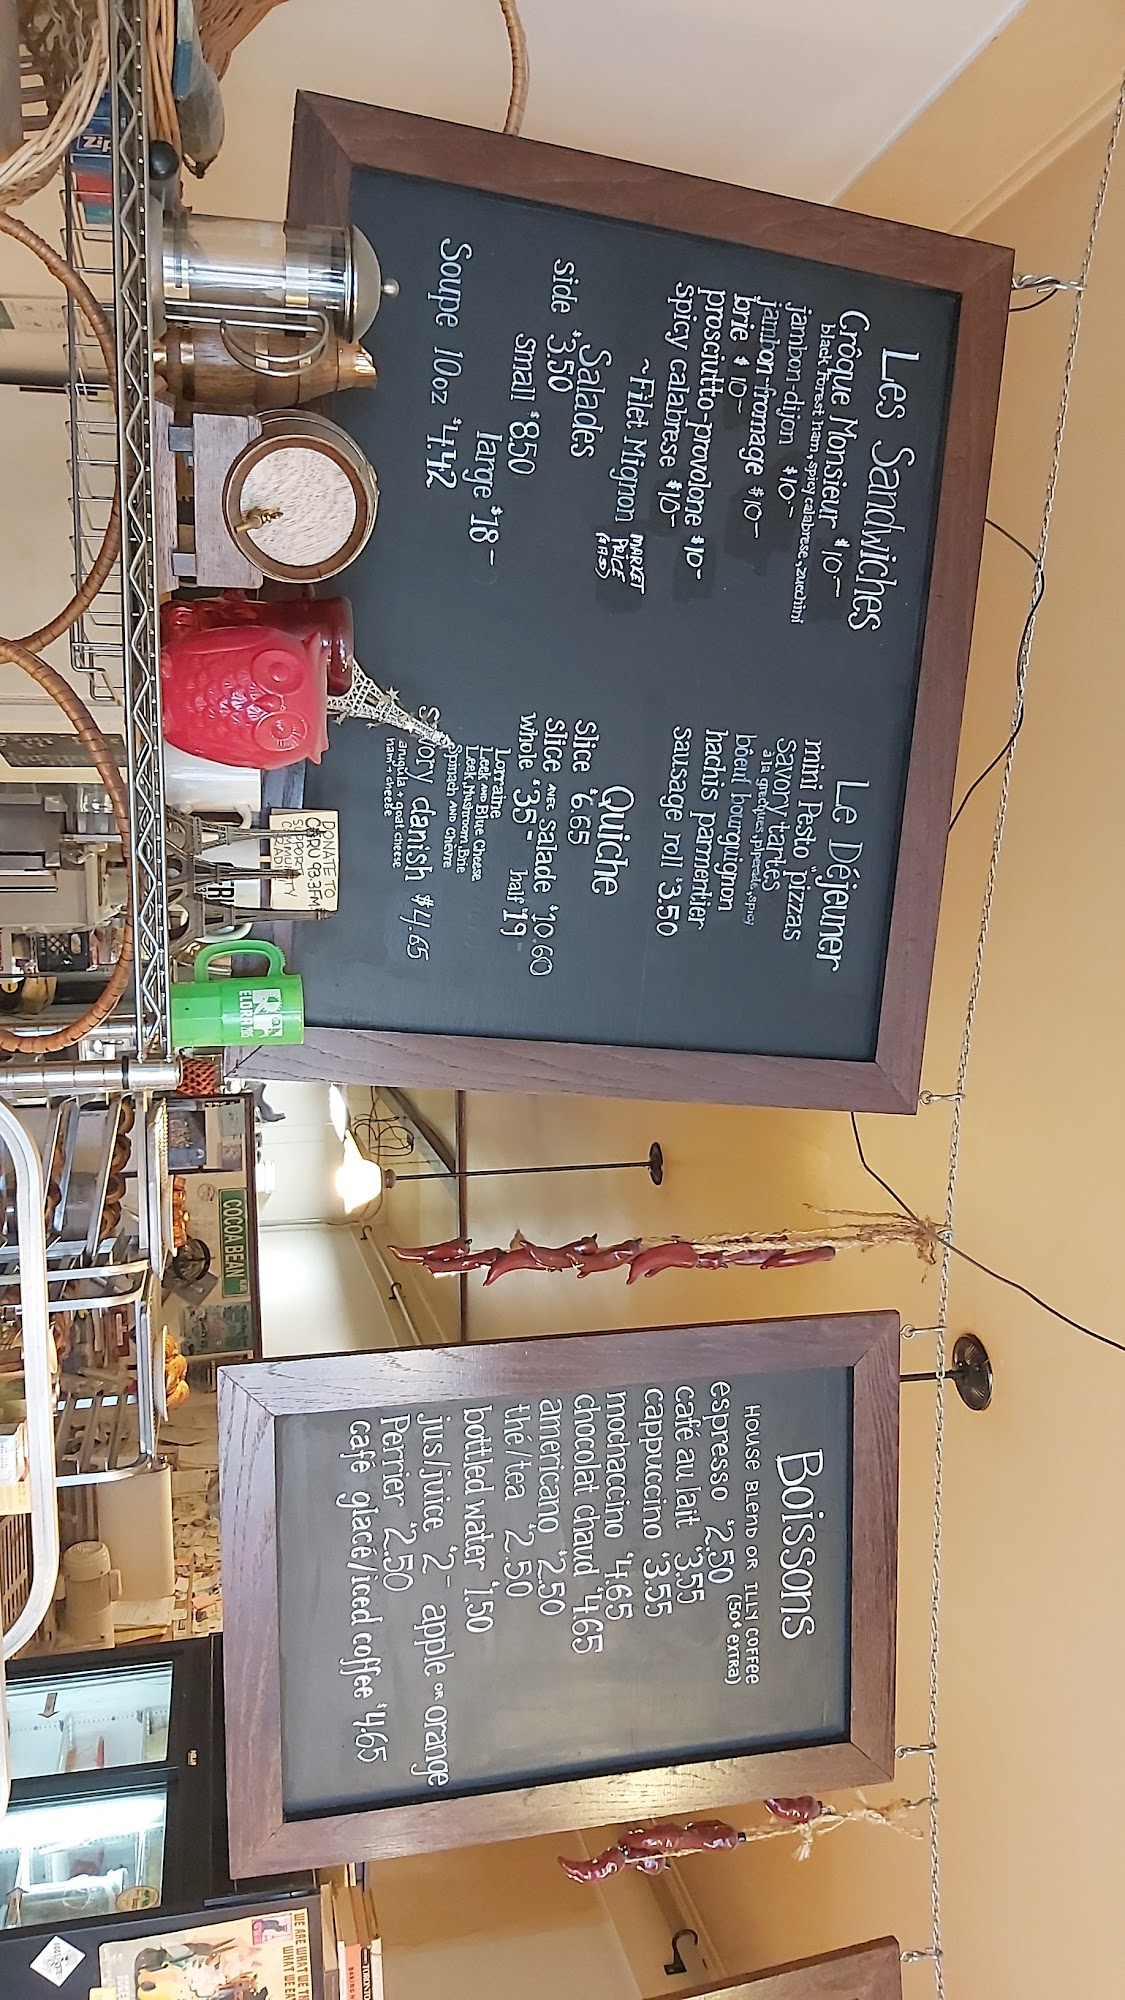 Les Sandwiches
Crôque Monsieur $10-
black forest ham, spicy calabrese, zucchini
jambon dijon $10-
jambon-fromage $10-
brie $10-
prosciutto-provolone $10-
spicy calabrese $10-
~Filet Mignon MARKET PRICE
Salades
Side $3.50
small $8.50
large $18-
Soupe 10oz $4.42
Le Déjeuner
mini Pesto "pizzas
Savory tartes
bœuf bourguignon
hachis parmentier
sausage roll $3.50
Quiche
slice $6.65
slice AVEC salade $10.60
whole $35- half $19
Lorraine
Leek AND Blue Cheese
Leek, Mushroom, Brie
Spinach AND Chèvre
Savory danish $4.65
arugula + goat cheese
ham + cheese
Boissons
HOUSE BLEND OR ILLY COFFEE
(50¢ EXTRA)
espresso $2.50
café au lait $3.55
cappuccino $3.55
mochaccino $4.65
chocolat chaud $4.65
americano $2.50
thé/tea $2.50
bottled water $1.50
jus/juice $2- apple OR orange
Perrier $2.50
café glacé/iced coffee $4.65
DONATE TO
CFRU 93.3FM
SUPPORT
COMMUNITY
RADIO
ELORA
COCOA BEAN
WE ARE WHAT WE